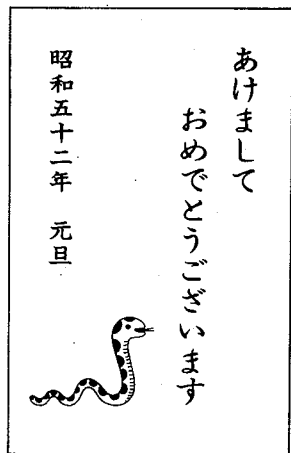 あけまして
おめでとうございます
昭和五十二年　元旦